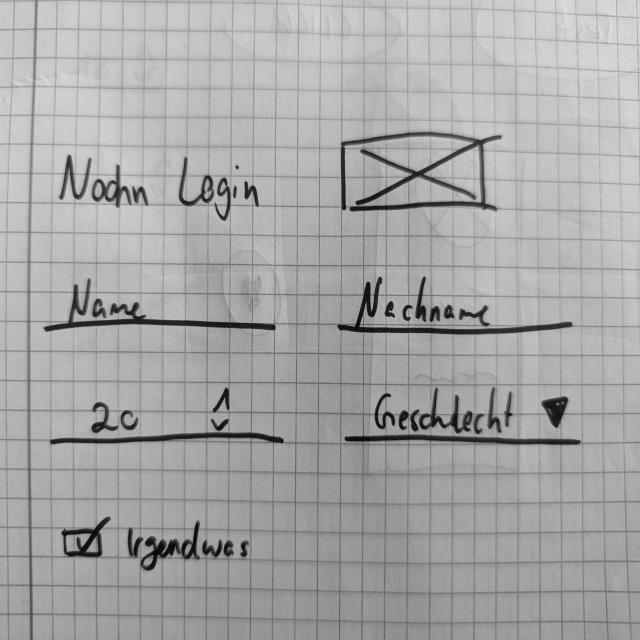 Nochn Login
Name Nachname
20 Geschlecht
Irgendwas